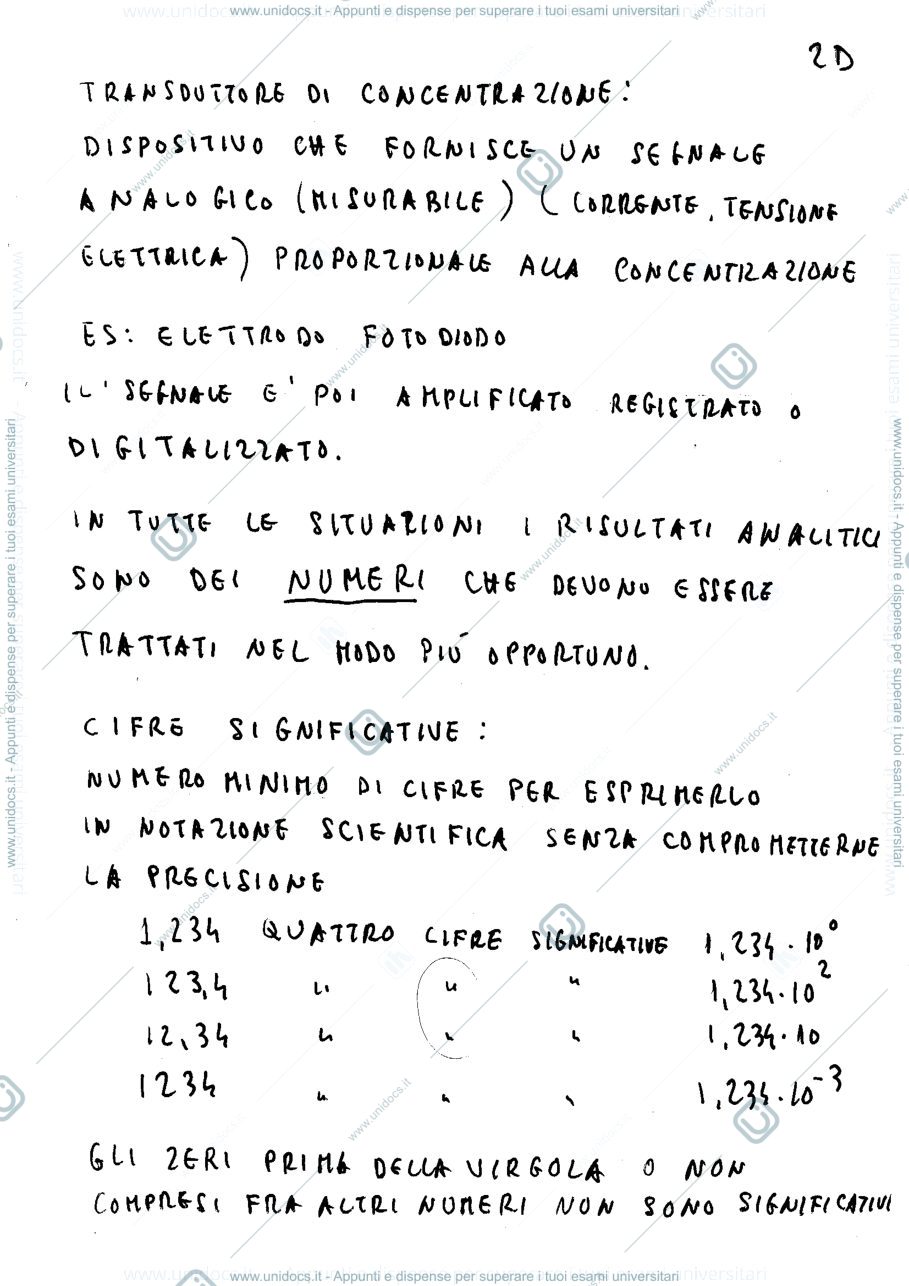 www.unidocs.it - Appunti e dispense per superare i tuoi esami universitari
2D
TRANSDUTTORE DI CONCENTRAZIONE:
DISPOSITIVO CHE FORNISCE UN SEGNALE
ANALOGICO (MISURABILE) (CORRENTE, TENSIONE
ELETTRICA) PROPORZIONALE ALLA CONCENTRAZIONE
ES: ELETTRODO FOTODIODO
IL' SEGNALE E' POI AMPLIFICATO REGISTRATO O
DIGITALIZZATO.
IN TUTTE LE SITUAZIONI I RISULTATI ANALITICI
SONO DEI NUMERI CHE DEVONO ESSERE
TRATTATI NEL MODO PIÚ OPPORTUNO.
CIFRE SIGNIFICATIVE:
NUMERO MINIMO DI CIFRE PER ESPRIMERLO
IN NOTAZIONE SCIENTIFICA SENZA COMPROMETTERNE
LA PRECISIONE
1,234 QUATTRO CIFRE SIGNIFICATIVE 1,234 · 10⁰
123,4 " " " 1,234 · 10²
12,34 " " " 1,234 · 10
1234 " " " 1,234 · 10⁻³
GLI ZERI PRIMA DELLA VIRGOLA O NON
COMPRESI FRA ALTRI NUMERI NON SONO SIGNIFICATIVI
www.unidocs.it - Appunti e dispense per superare i tuoi esami universitari
www.unidocs.it - Appunti e dispense per superare i tuoi esami universitari
www.unidocs.it - Appunti e dispense per superare i tuoi esami universitari